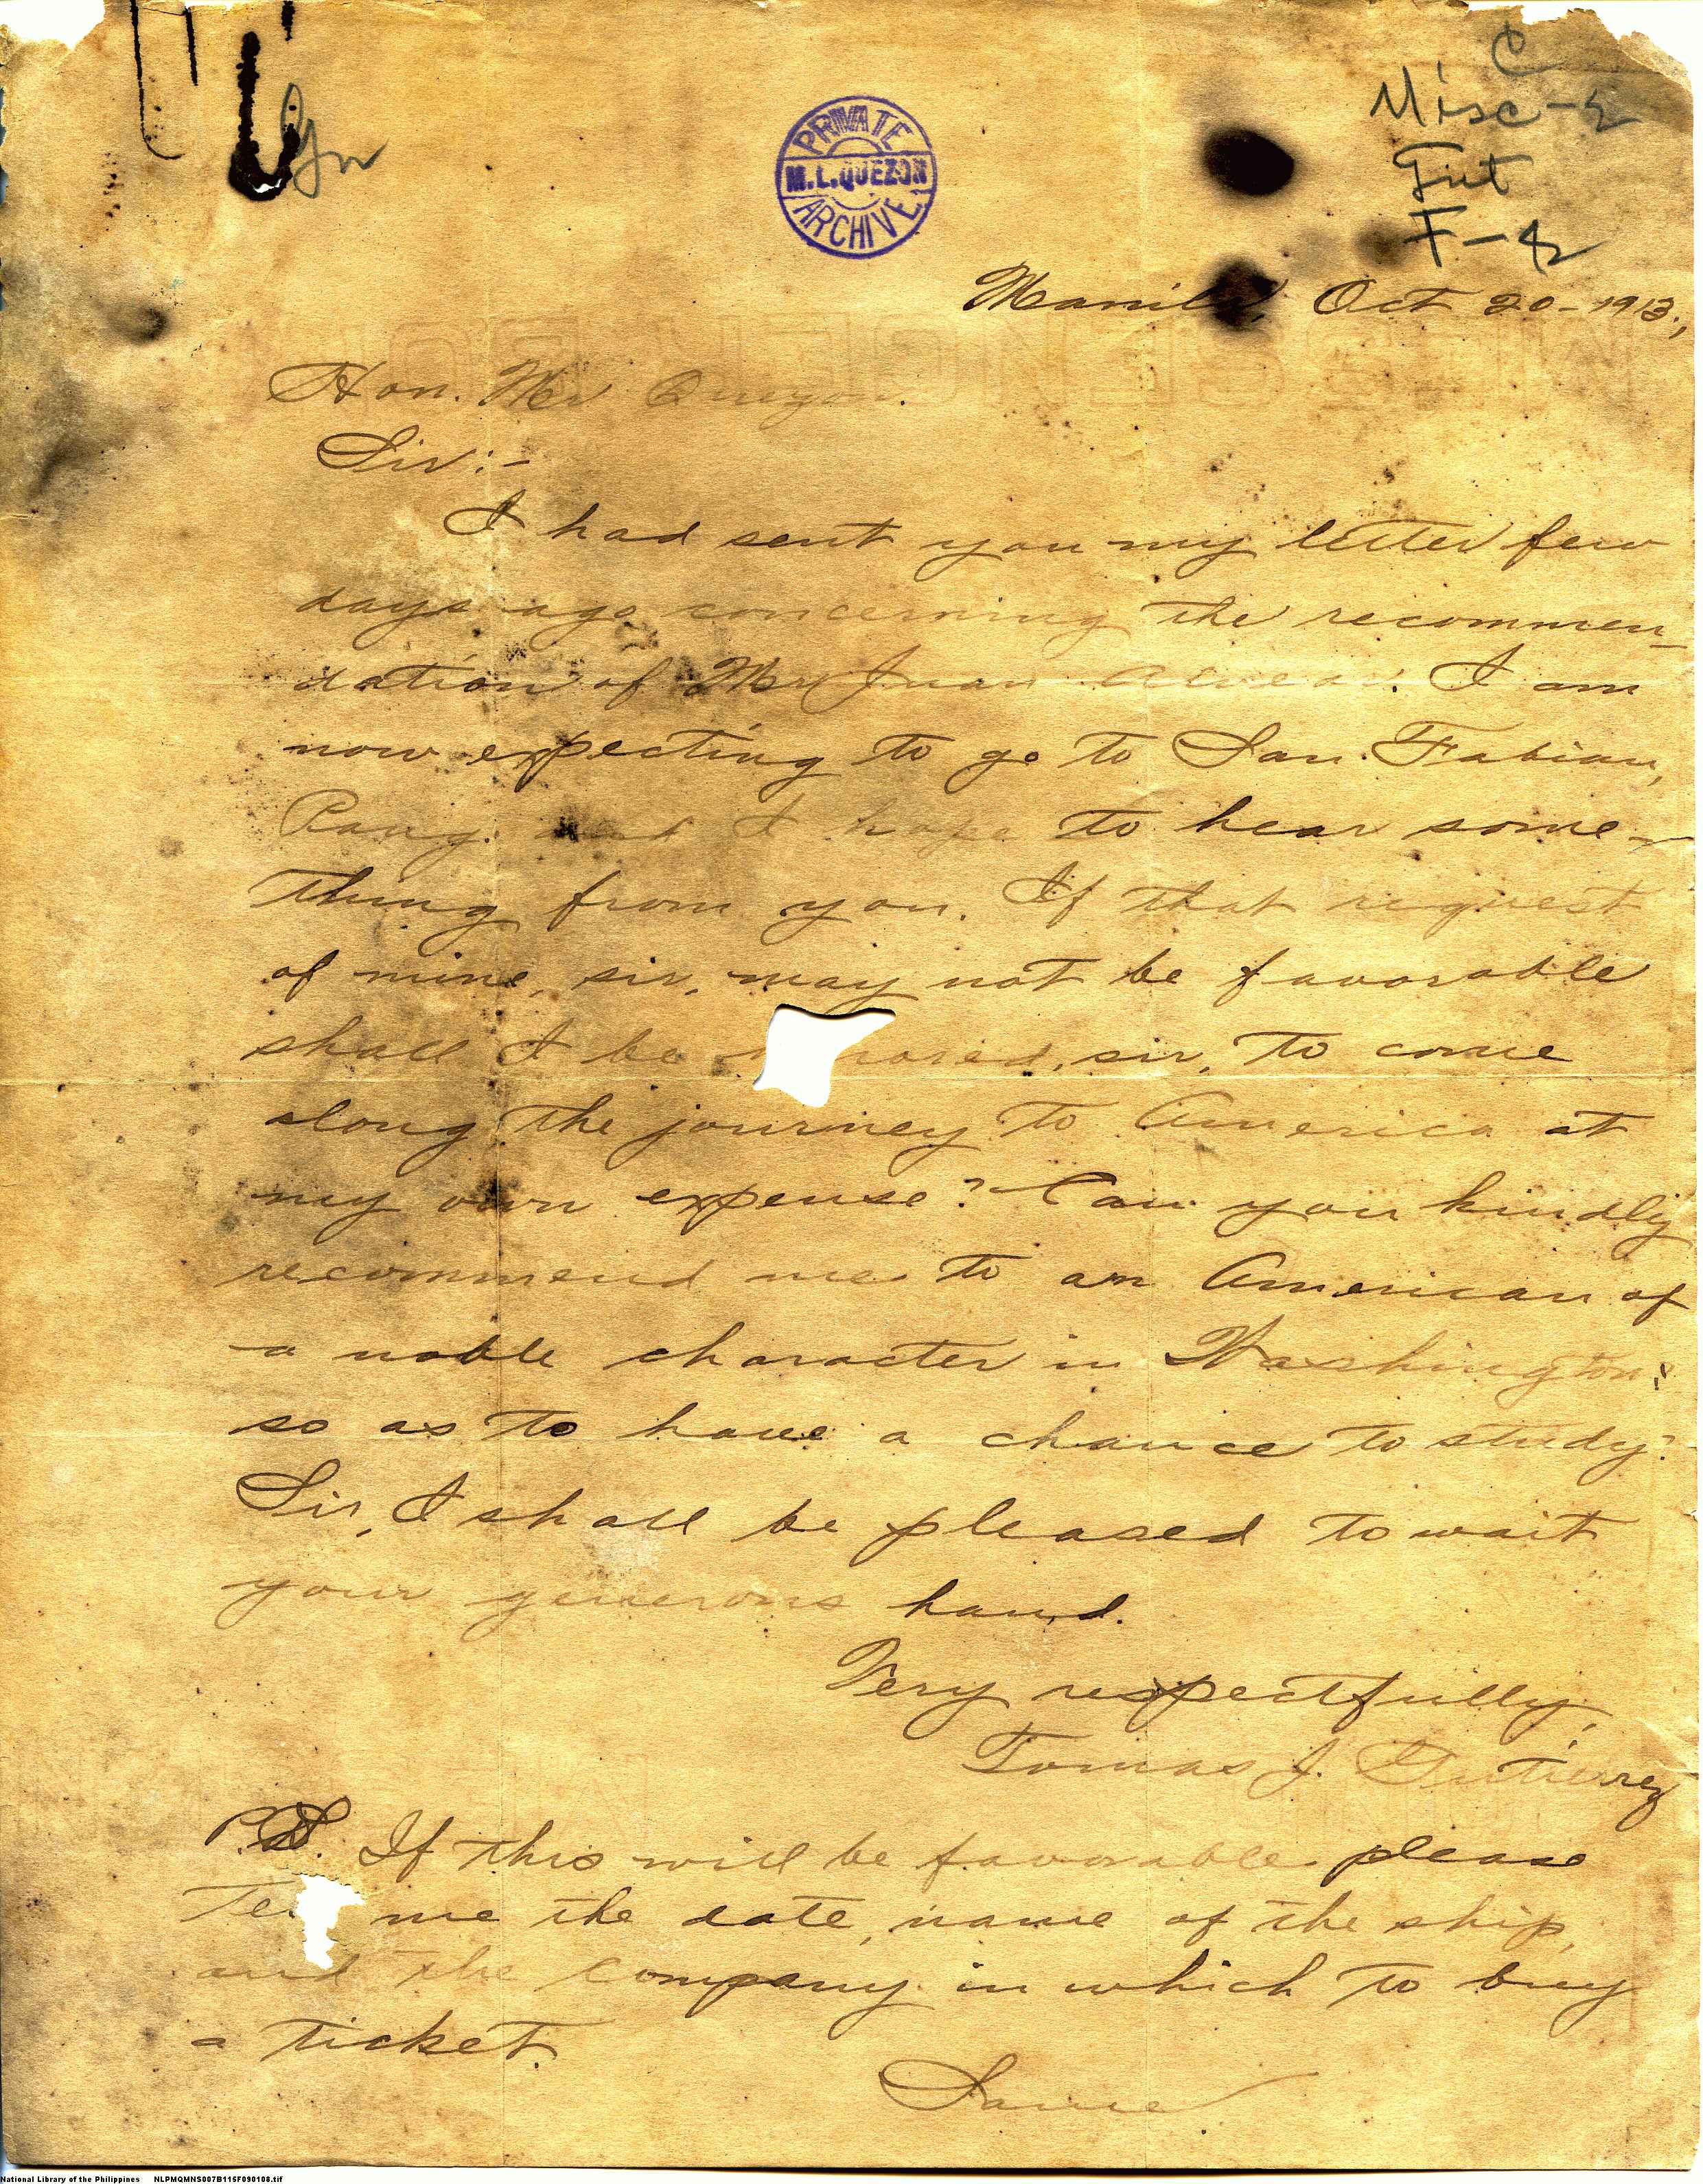 C
Misc-2
Gut
F-2
PRIVATE
M.L.QUEZON
ARCHIVE
Manila, Oct 20-1913.,
Hon. Mr Quezon.
Sir:-
I had sent you my letter few
days ago concerning the recommen-
dation of Mr Juan Alvear. I am
now expecting to go to San Fabian,
Pang. and I hope to hear some-
thing from you. If that request
of mine, sir, may not be favorable
shall I be sir, to come
along the journey to America at
my own expense? Can you kindly
recommend me to an American of
a noble character in Washington;
so as to have a chance to study?
Sir, I shall be pleased to wait
your generous hand.
Very respectfully,
Tomas J. Gutierrez
P.S. If this will be favorable please
me the date, name of the ship,
and the company in which to buy
a ticket.
Same
National Library of the Philippines NLPMQMNS007B115F090108.tif